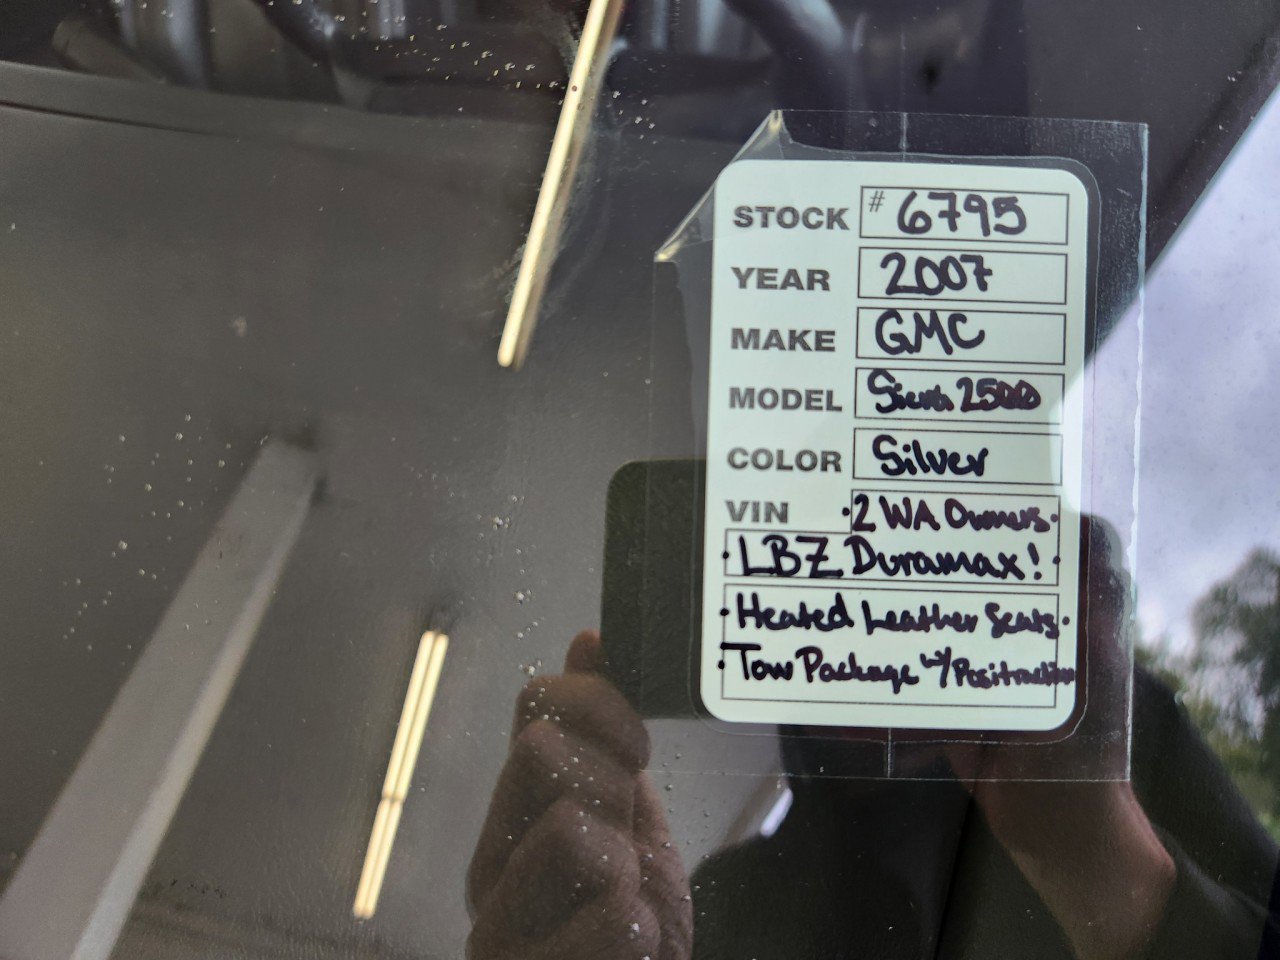 STOCK # 6795
YEAR 2007
MAKE GMC
MODEL Sierra 2500
COLOR Silver
VIN •2 WA Owners•
•LBZ Duramax!•
•Heated Leather Seats•
•Tow Package w/Positraction